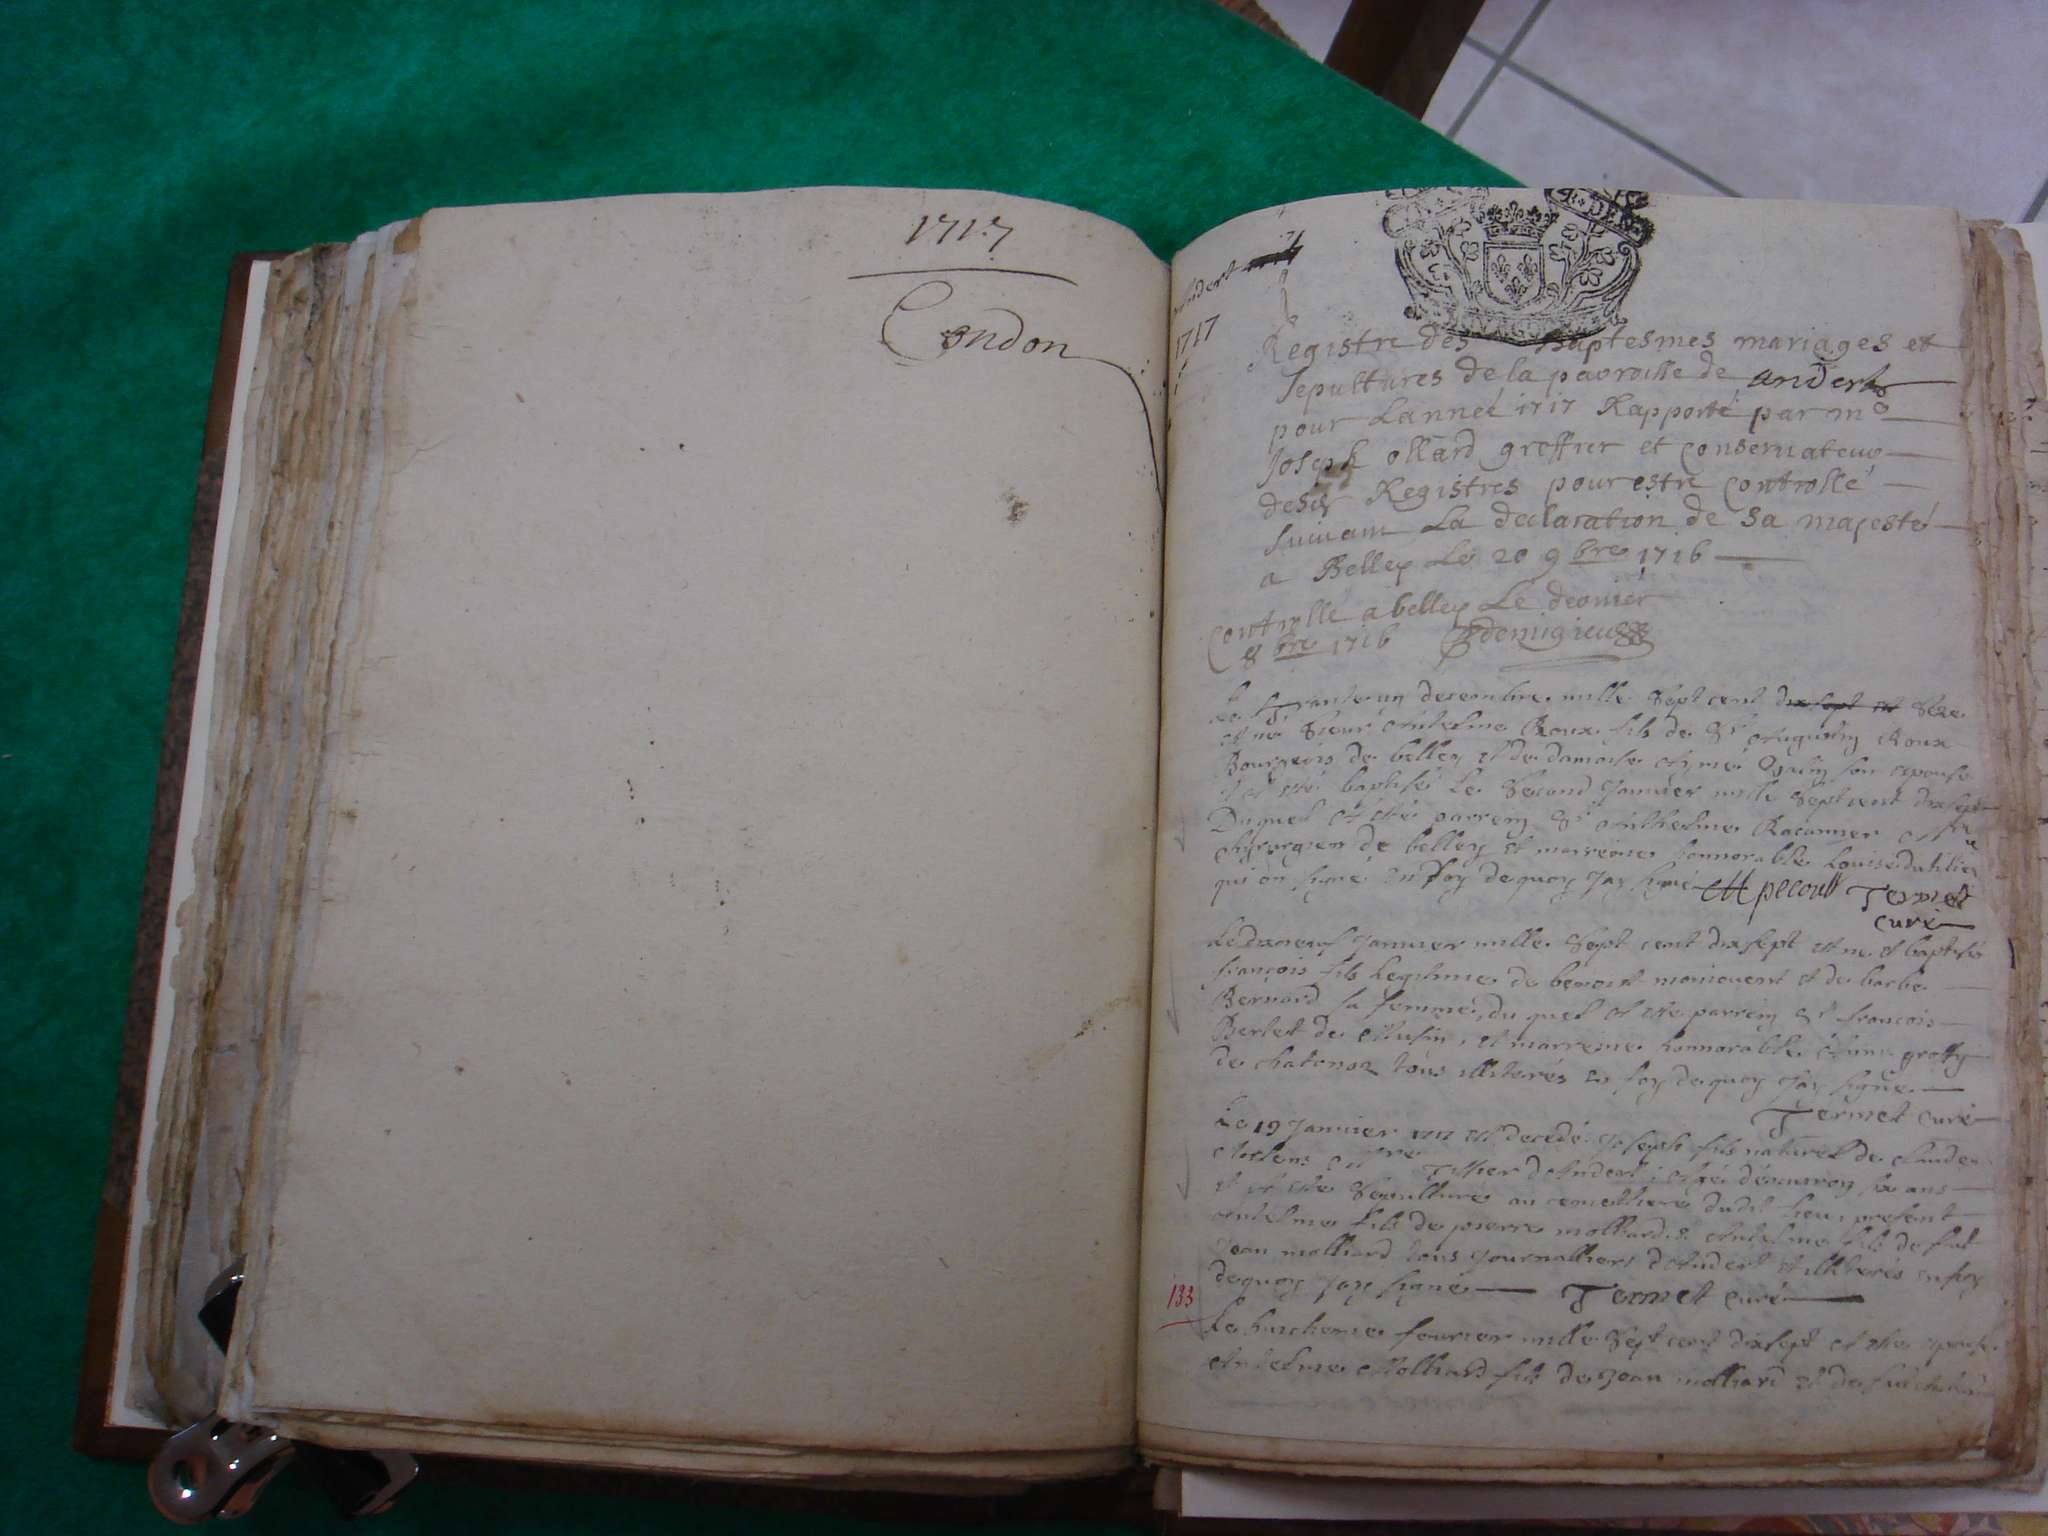 1717
Condon
Andert
1717
Registre des Baptesmes mariages et
sepultures de la parroisse de andert
pour Lanneé 1717 Rapporté par mᵉ
Joseph ollard greffier et Conservateur
desd Registres pour estre Controllé
suivant La declaration de sa majesté
a Belley Le 20 9bre 1716
Controllé a belley Le dernier
8bre 1716 demigieu
Le trante un decembre mille sept cent dixsept et seze
est né Sieur Antelme Roux fils de Sr Augustin Roux
Bourgeois de belley et de damoise son epouse
et esté baptisé Le second Janvier mille sept cent dixsept
Duquel a esté parrein Sr Anthelme
chirurgien de belley et marreine honnorable Louise
qui on signé en foy de quoy Jay signé pecoult Termet
curé
Le dixneuf Janvier mille sept cent dixsept est ne et baptisé
françois fils legitime de benoist et de barbe
Bernard sa femme, du quel a esté parrein Sr françois
Berlet de et marreine honnorable
de chatonoz tous illiterés en foy de quoy Jay signé
Termet curé
Le 19 Janvier 1717 est decedé Joseph fils naturel de claude
Tissier dAndert, agé denviron six ans
et a esté Sepulturé au cemethiere dudit lieu, present
Antelme fils de pierre molliard, & Antelme fils de
Jean molliard tous Journalliers dAndert illiterés en foy
dequoy Jay signé Termet curé
133
Le huictieme fevrier mille sept cent dixsept a esté
Antelme Molliard fils de Jean molliard et de